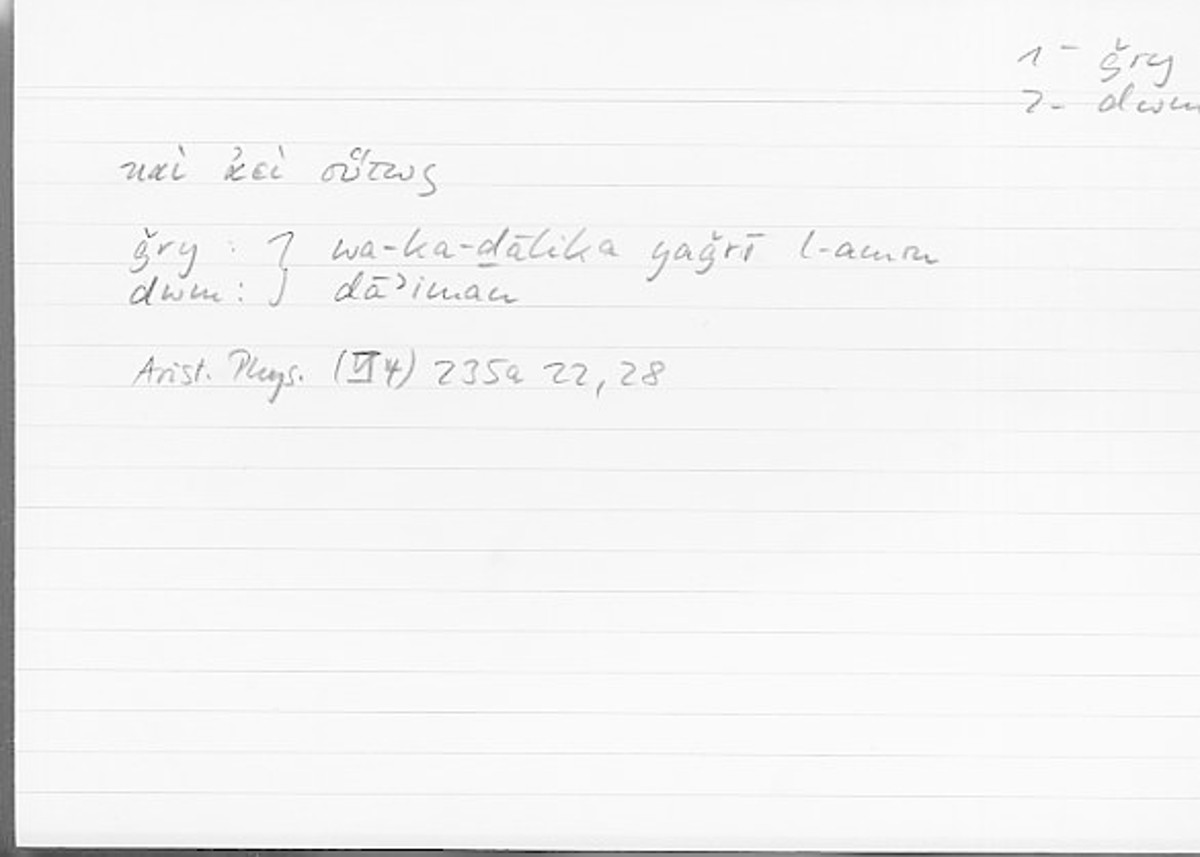 1 - ǧry
2 - dwm
καὶ ἀεὶ οὕτως
ǧry : } wa-ka-ḏālika yaǧrī l-amru
dwm : } dāʾiman
Arist. Phys. (VI 4) 235a 22, 28